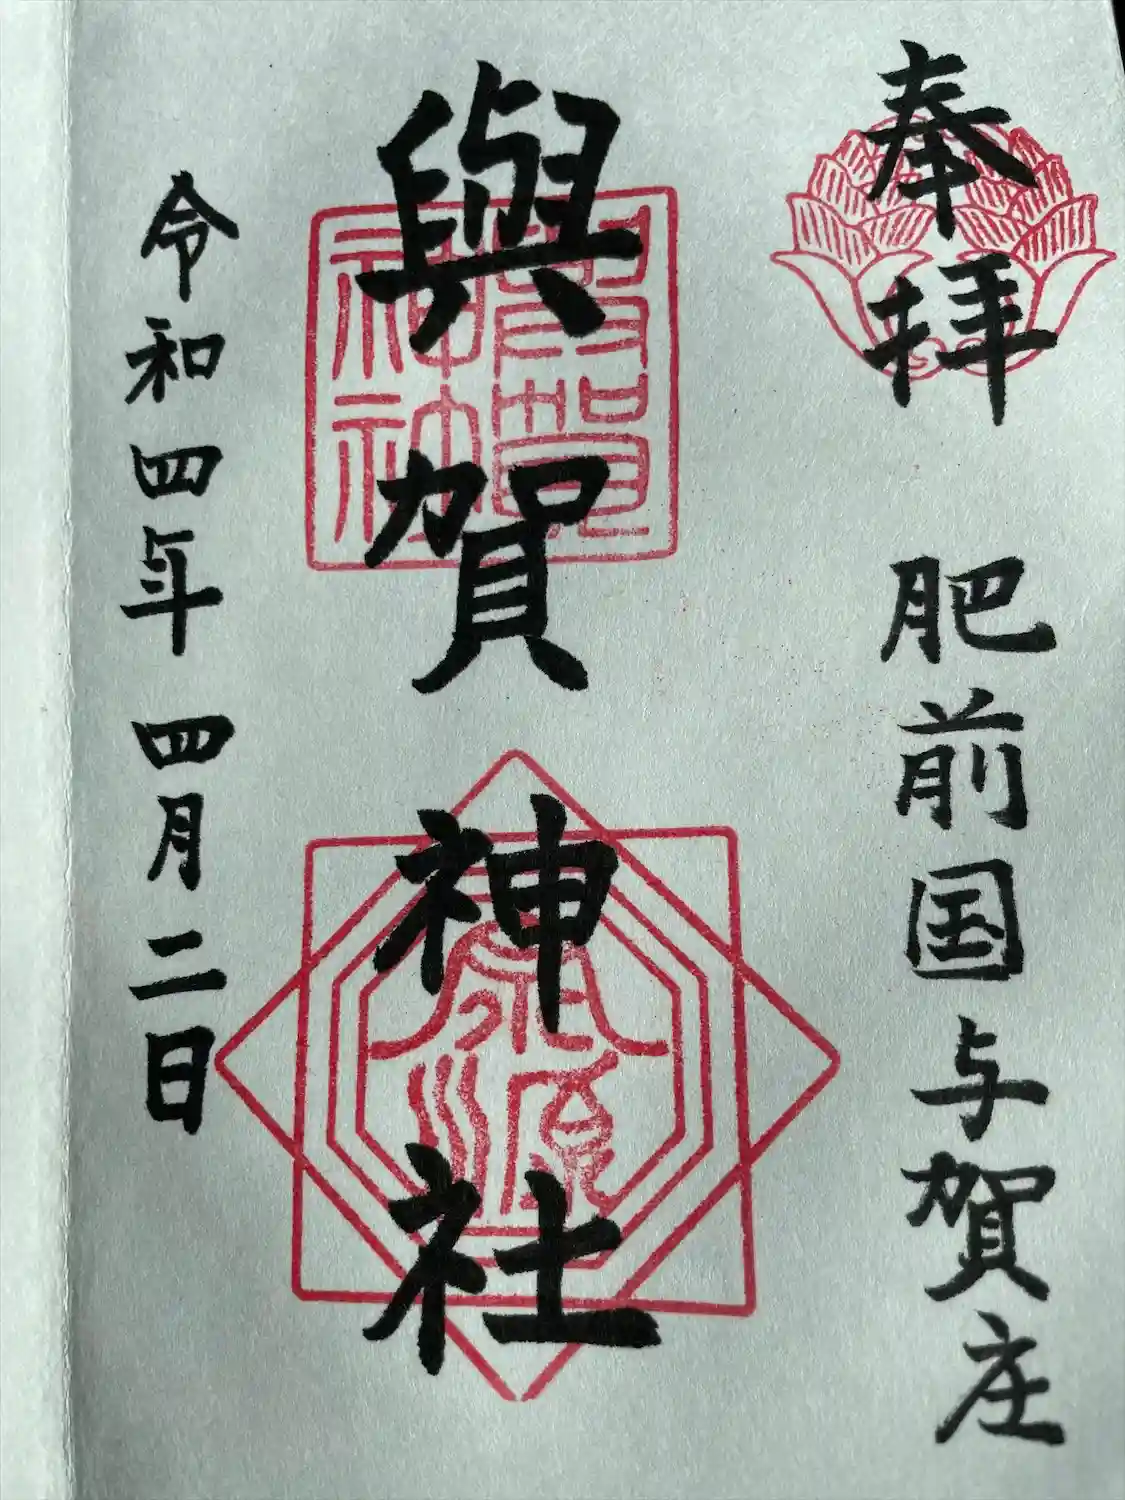 奉拝 肥前国与賀庄
與賀神社
令和四年四月二日
與賀
神社